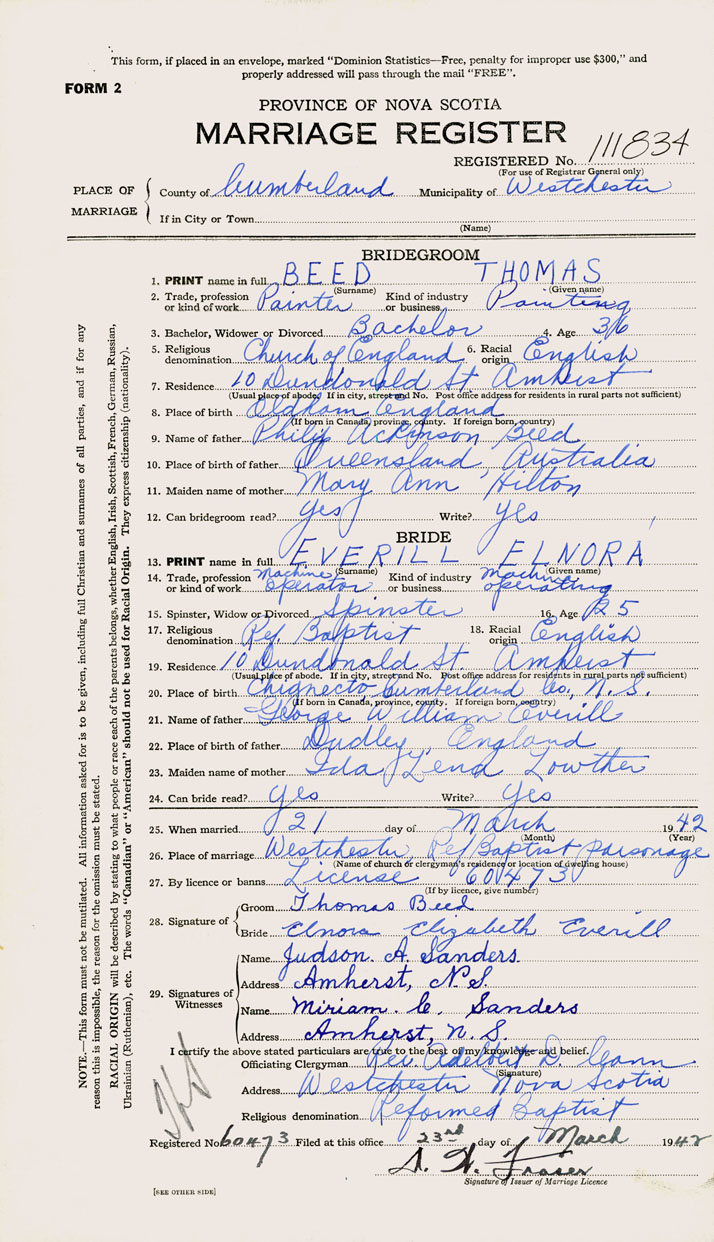 This form, if placed in an envelope, marked "Dominion Statistics—Free, penalty for improper use $300," and
properly addressed will pass through the mail "FREE".
FORM 2
PROVINCE OF NOVA SCOTIA
MARRIAGE REGISTER
REGISTERED No. 111834
(For use of Registrar General only)
PLACE OF MARRIAGE
County of Cumberland Municipality of Westchester
If in City or Town
(Name)
BRIDEGROOM
1. PRINT name in full BEED THOMAS
(Surname) (Given name)
2. Trade, profession or kind of work Painter Kind of industry or business Painting
3. Bachelor, Widower or Divorced Bachelor 4. Age 36
5. Religious denomination Church of England 6. Racial origin English
7. Residence 10 Dundonald St Amherst
(Usual place of abode. If in city, street and No. Post office address for residents in rural parts not sufficient)
8. Place of birth Oldham England
(If born in Canada, province, county. If foreign born, country)
9. Name of father Philip Ackinson Beed
10. Place of birth of father Queensland, Australia
11. Maiden name of mother Mary Ann Hilton
12. Can bridegroom read? yes Write? yes
BRIDE
13. PRINT name in full EVERILL ELNORA
(Surname) (Given name)
14. Trade, profession or kind of work Machine operator Kind of industry or business Machine operating
15. Spinster, Widow or Divorced Spinster 16. Age 25
17. Religious denomination Ref. Baptist 18. Racial origin English
19. Residence 10 Dundonald St. Amherst
(Usual place of abode. If in city, street and No. Post office address for residents in rural parts not sufficient)
20. Place of birth Chignecto Cumberland Co., N.S.
(If born in Canada, province, county. If foreign born, country)
21. Name of father George William Everill
22. Place of birth of father Dudley, England
23. Maiden name of mother Ida Lena Lowther
24. Can bride read? yes Write? yes
25. When married 21 day of March 1942
(Month) (Year)
26. Place of marriage Westchester, Ref Baptist Parsonage
(Name of church or clergyman's residence or location of dwelling house)
27. By licence or banns License 60473
(If by licence, give number)
28. Signature of
Groom Thomas Beed
Bride Elnora Elizabeth Everill
29. Signatures of Witnesses
Name Judson. A. Sanders.
Address Amherst, N.S.
Name Miriam. C. Sanders
Address Amherst, N.S
I certify the above stated particulars are true to the best of my knowledge and belief.
Officiating Clergyman Rev. Adelbert D. Cann
(Signature)
Address Westchester Nova Scotia
Religious denomination Reformed Baptist
Registered No. 60473 Filed at this office 23rd day of March 1942
Fraser
Signature of Issuer of Marriage Licence
[SEE OTHER SIDE]
NOTE.—This form must not be mutilated. All information asked for is to be given, including full Christian and surnames of all parties, and if for any
reason this is impossible, the reason for the omission must be stated.
RACIAL ORIGIN will be described by stating to what people or race each of the parents belongs, whether English, Irish, Scottish, French, German, Russian,
Ukrainian (Ruthenian), etc. The words "Canadian" or "American" should not be used for Racial Origin. They express citizenship (nationality).